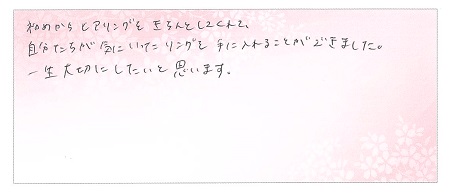 初めからヒアリングをきちんとしてくれて、
自分たちが気にいってリングを手に入れることができました。
一生大切にしたいと思います。